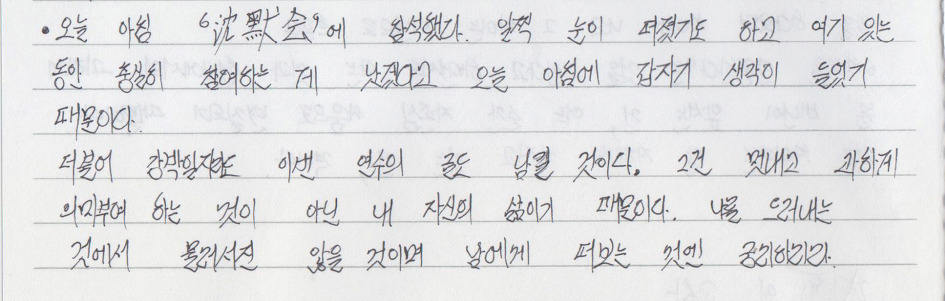 • 오늘 아침 '沈默会'에 참석했다. 일찍 눈이 떠졌기도 하고 여기 있는
동안 충실히 참여하는 게 낫겠다고 오늘 아침에 갑자기 생각이 들었기
때문이다.
더불어 강박일지라도 이번 연수의 글도 남길 것이다. 그건 멋내고 과하게
의미부여 하는 것이 아닌 내 자신의 삶이기 때문이다. 나를 드러내는
것에서 물러서진 않을 것이며 남에게 떠보는 것엔 궁리하리라.